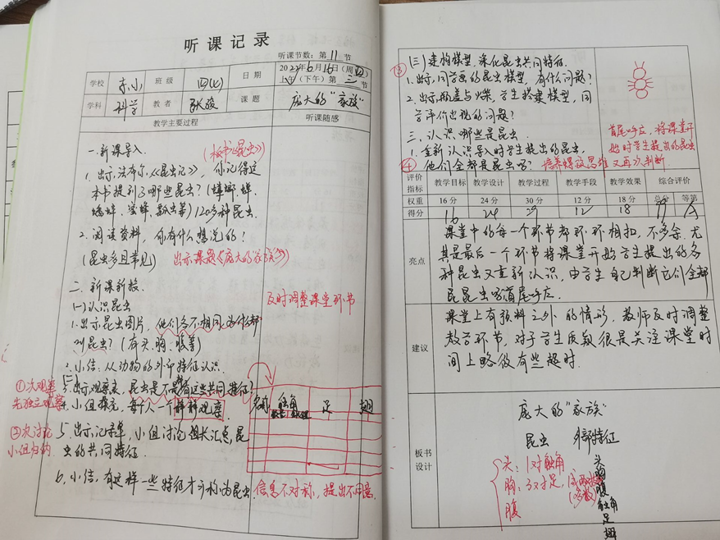 听课记录
听课节数：第11节
学校 东小 班级 四(七) 日期 2022年6月16日(周四)
上午(下午)第二节
学科 科学 教者 课题 庞大的"家族"
教学主要过程 听课随感
一. 新课导入 (板书《昆虫》)
1. 出示法布尔《昆虫记》, 你记得这
本书提到了哪些昆虫? (蟑螂 蝉
蜜蜂 120多种昆虫.
2. 阅读资料, 你有什么想说的?
(昆虫多且常见) 出示课题《庞大的家族》
二. 新课新授.
(一) 认识昆虫
及时调整课堂环节
1. 出示昆虫图片, 他们各不相同, 为什么都
叫昆虫? (有头、胸、腹等)
2. 小结. 从动物的外形特征认识.
①一次观察
先独立观察
3. 出示观察表, 昆虫是不是都有这些共同特征?
4. 小组探究, 每个人一个种种观察
名称 触角 足 翅
②二次讨论
小组归纳
5. 出示记录单, 小组讨论, 组长汇总, 昆
虫的共同特征.
6. 小结, 有这样一些特征才可称为昆虫.
信息不对称, 提出不同意.
③
(三) 建构模型, 深化昆虫共同特征.
1. 出示同学画的昆虫模型, 有什么问题?
2. 出示瓶盖与火柴, 学生搭建模型, 同
学评价出现的问题?
三. 认识哪些是昆虫.
1. 重新认识导入时学生提出的昆虫.
首尾呼应, 将课堂开
始时学生提出的昆虫
④ 他们全部是昆虫吗? 培养模型思维 又再次判断
评价指标 教学目标 教学设计 教学过程 教学手段 教学效果 综合评价
权重 16分 24分 30分 12分 18分 总分 等第
得分 16 24 29 12 18 99 A
亮点
课堂中的每一个环节都环环相扣, 不多余, 尤
其是最后一个环节将课堂开始学生提出的各
种昆虫又重新认识, 由学生自己判断它们全部
是昆虫吗? 首尾呼应.
建议
课堂上有预料之外的情形, 教师及时调整
教学环节, 对于学生质疑很是关注, 课堂时
间上略微有些超时.
板书设计
庞大的"家族"
昆虫 外部特征
头: 1对触角
胸: 3对足, (多数)
腹
头
胸
腹
触角
足
翅